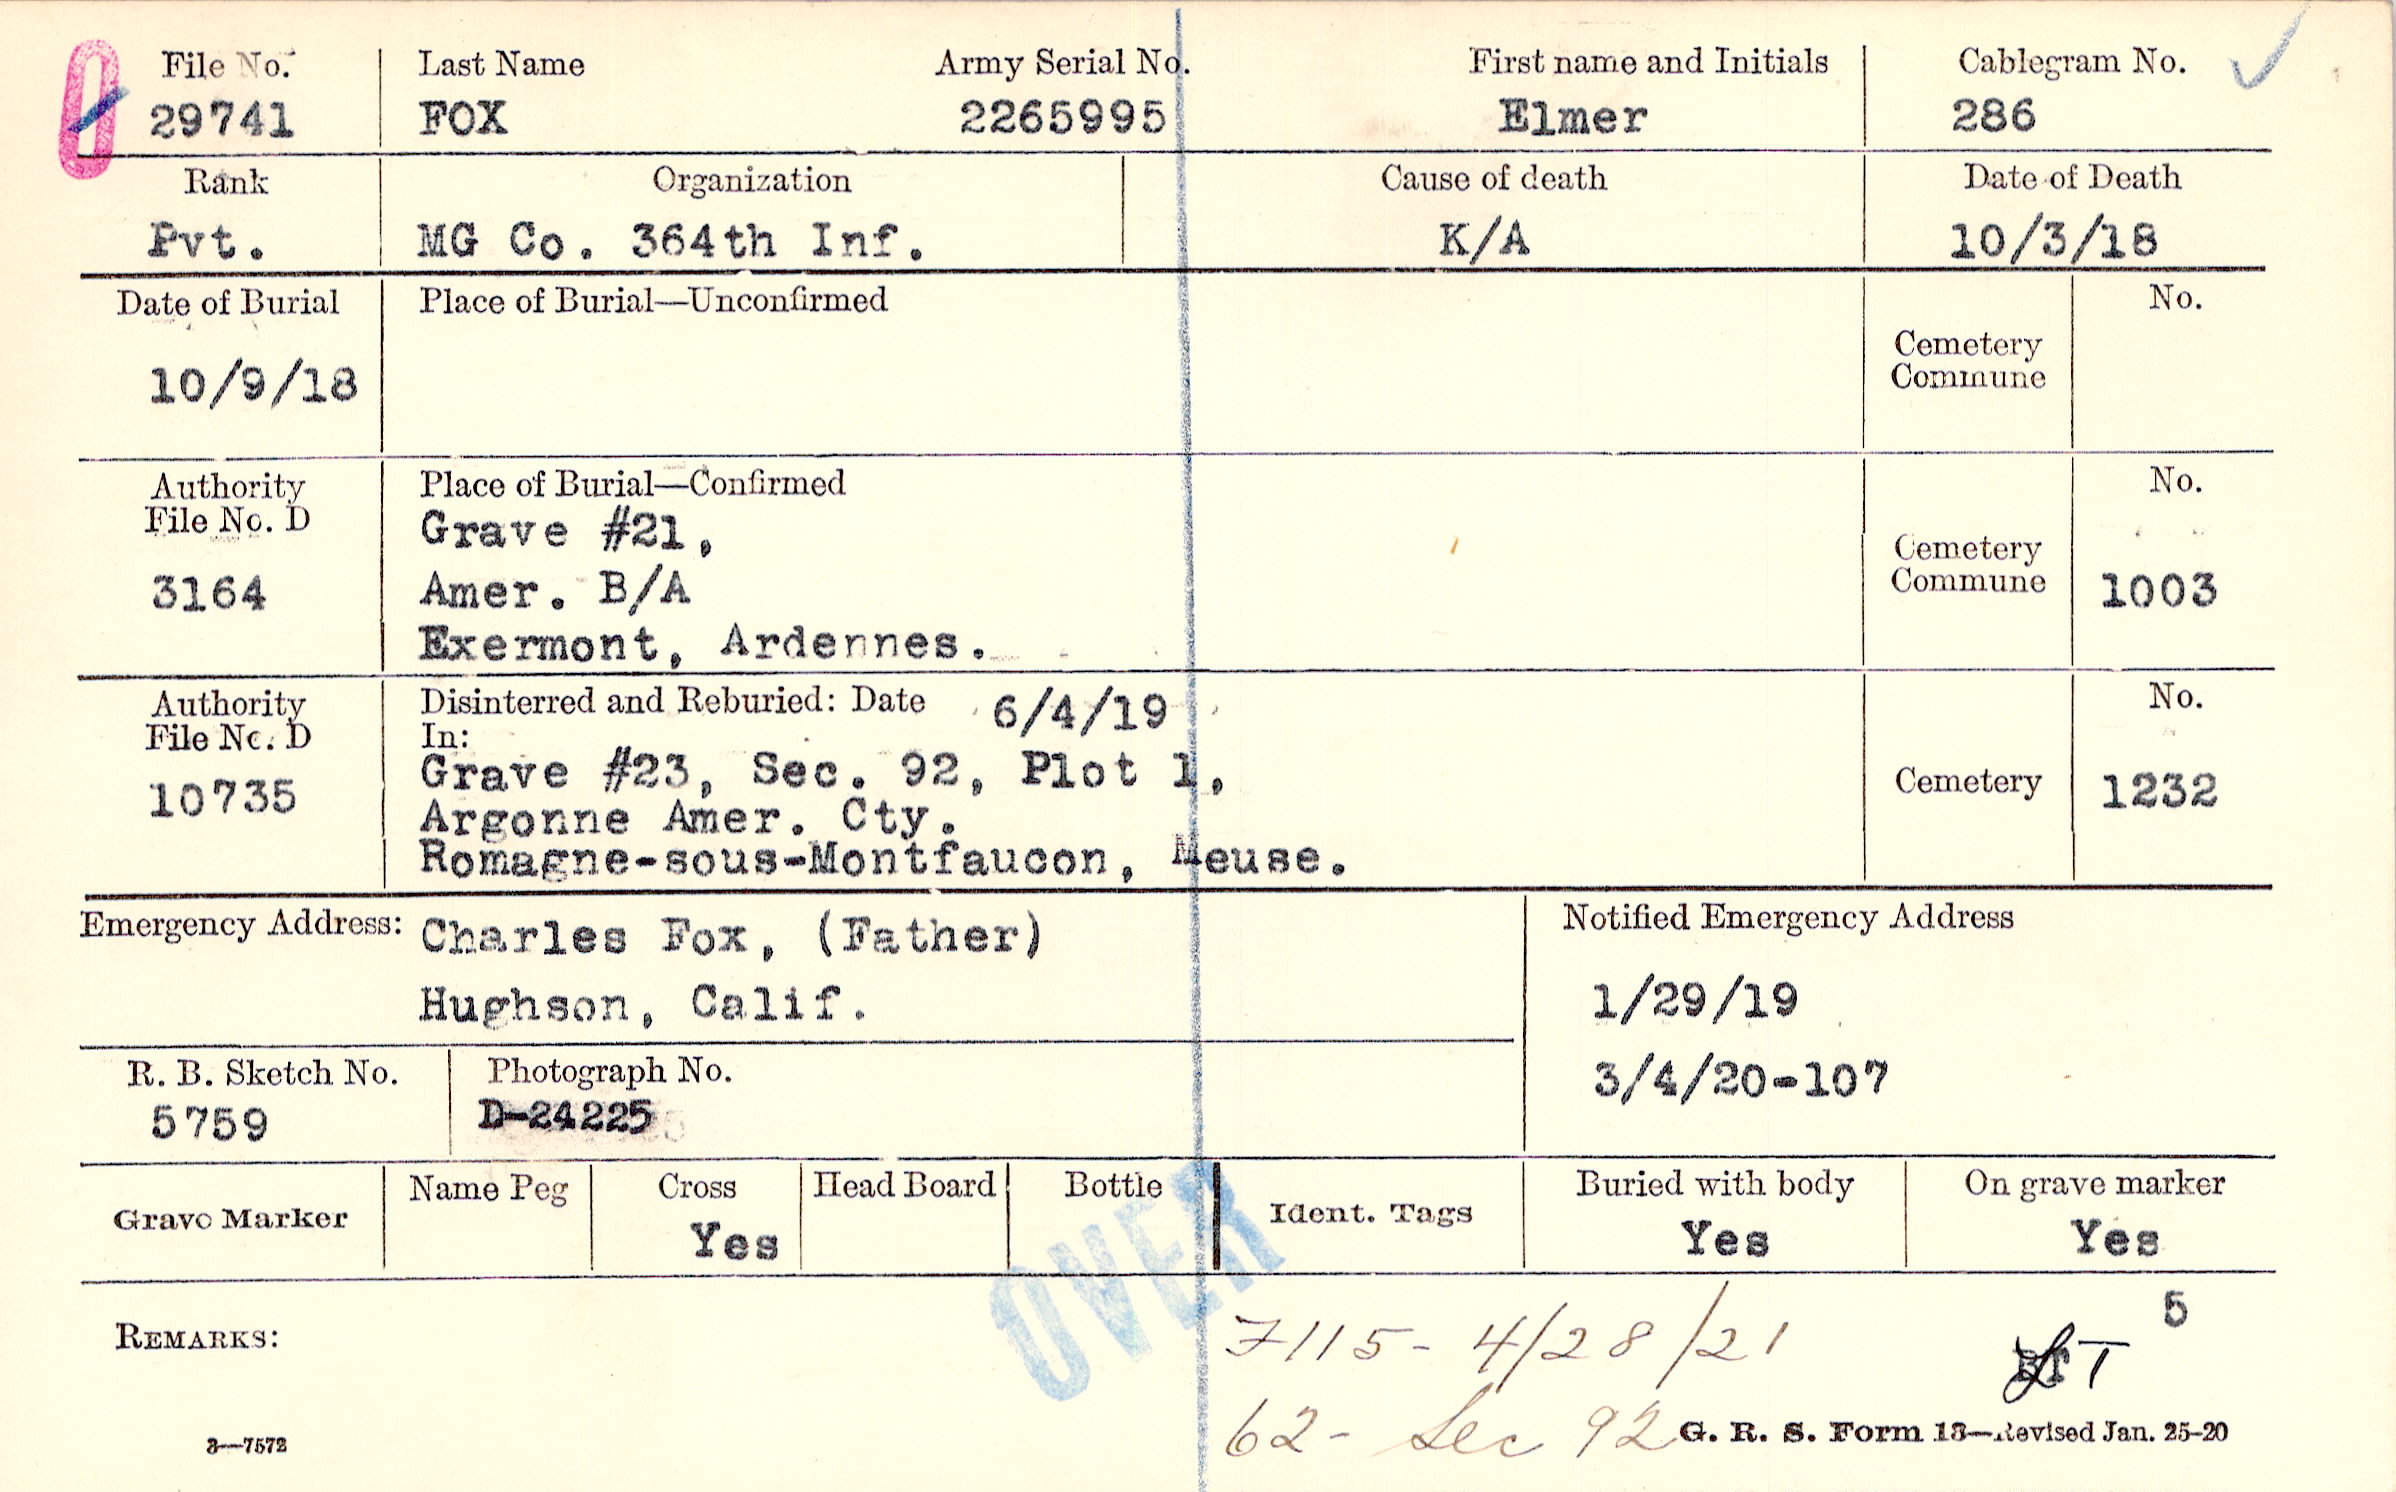 File No. Last Name Army Serial No. First name and Initials Cablegram No.
29741 FOX 2265995 Elmer 286
Rank Organization Cause of death Date of Death
Pvt. MG Co. 364th Inf. K/A 10/3/18
Date of Burial Place of Burial—Unconfirmed No.
10/9/18 Cemetery
Commune
Authority Place of Burial—Confirmed No.
File No. D Grave #21, Cemetery
3164 Amer. B/A Commune 1003
Exermont, Ardennes.
Authority Disinterred and Reburied: Date 6/4/19 No.
File No. D In:
10735 Grave #23, Sec. 92, Plot 1, Cemetery 1232
Argonne Amer. Cty.
Romagne-sous-Montfaucon, Meuse.
Emergency Address: Charles Fox, (Father) Notified Emergency Address
Hughson, Calif. 1/29/19
R. B. Sketch No. Photograph No. 3/4/20-107
5759 D-24225
Grave Marker Name Peg Cross Head Board Bottle Ident. Tags Buried with body On grave marker
Yes Yes Yes
OVER
5
REMARKS: 7115- 4/28/21
62- Sec 92 G. R. S. Form 13—Revised Jan. 25-20
3—7572